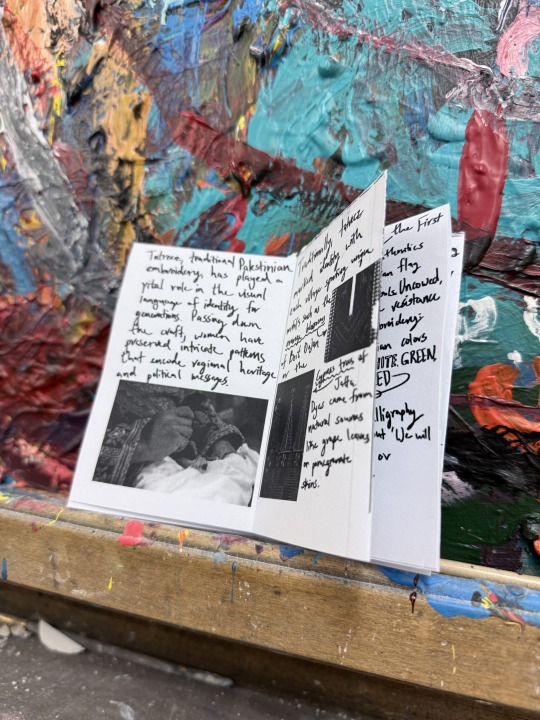 Tatreez, traditional Palestinian
embroidery, has played a
vital role in the visual
language of identity for
generations. Passing down
the craft, women have
preserved intricate patterns
that encode regional heritage
and political messages.
Traditionally, tatreez
identity with
each village sporting unique
such as the
orange blossoms
of Beit Dajan
or the
Cypress trees of
Jaffa.
Dyes came from
natural sources
like grape leaves
or pomegranate
skins.
the First
flag
resistance
colors
WHITE. GREEN.
RED
"We will